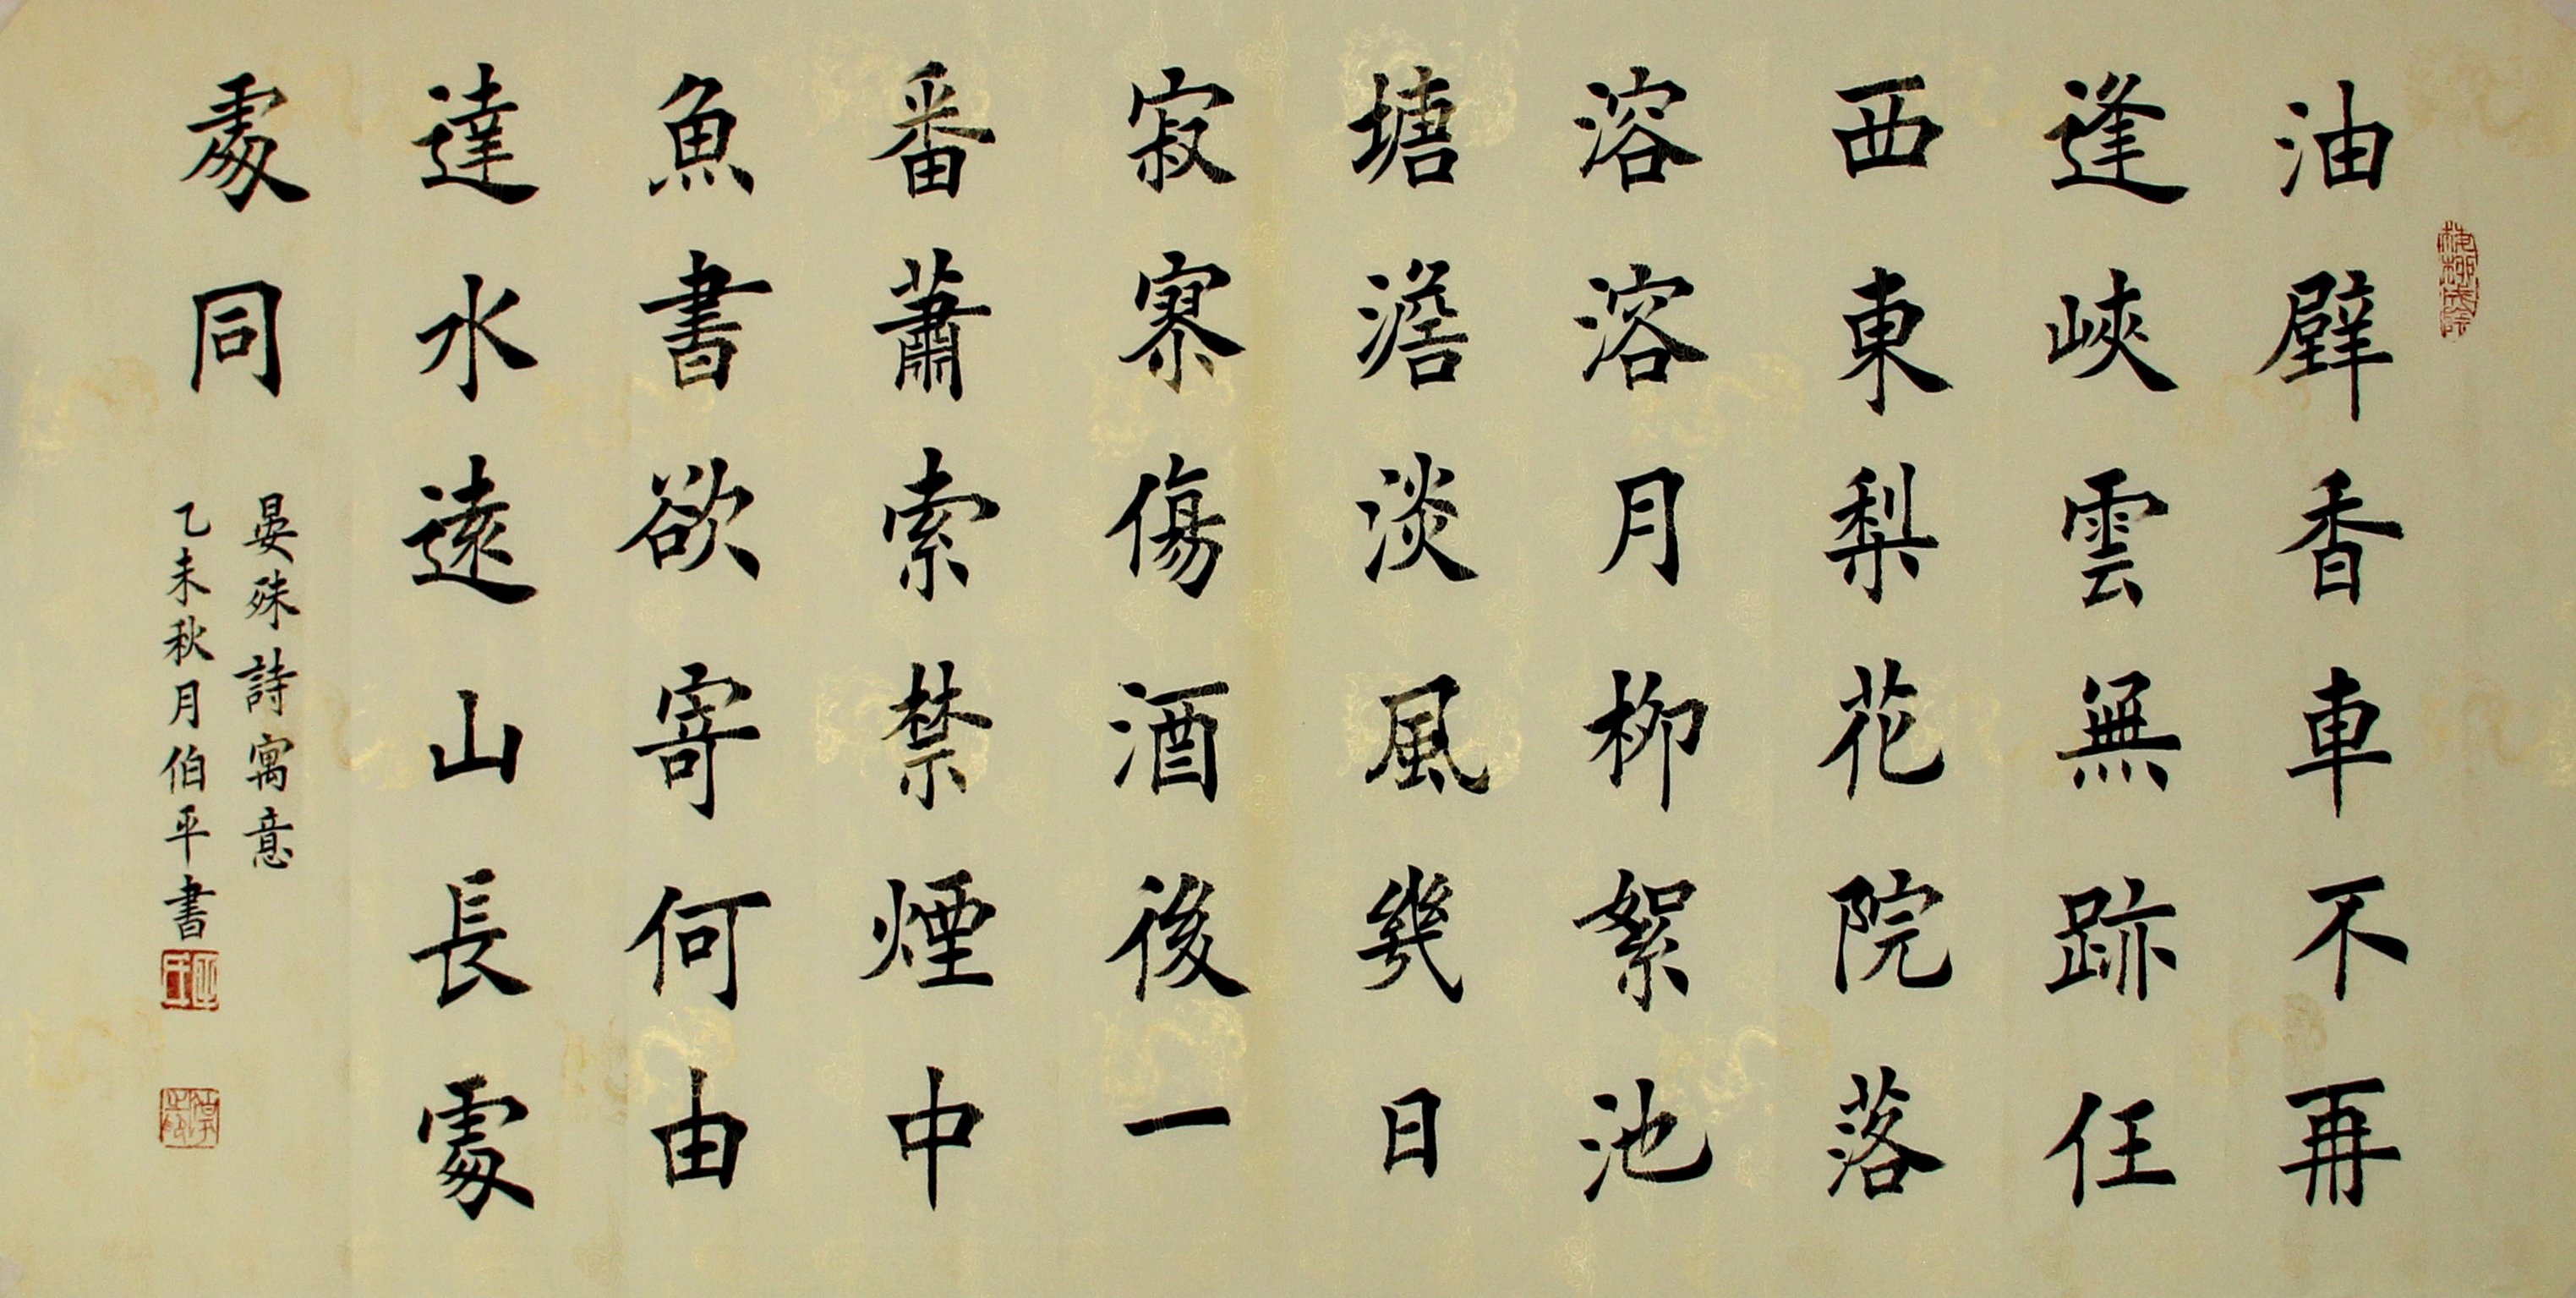 油壁香車不再
逢峽雲無跡任
西東梨花院落
溶溶月柳絮池
塘澹淡風幾日
寂寥傷酒後一
番蕭索禁煙中
魚書欲寄何由
達水遠山長處
處同
晏殊詩寓意
乙未秋月伯平書